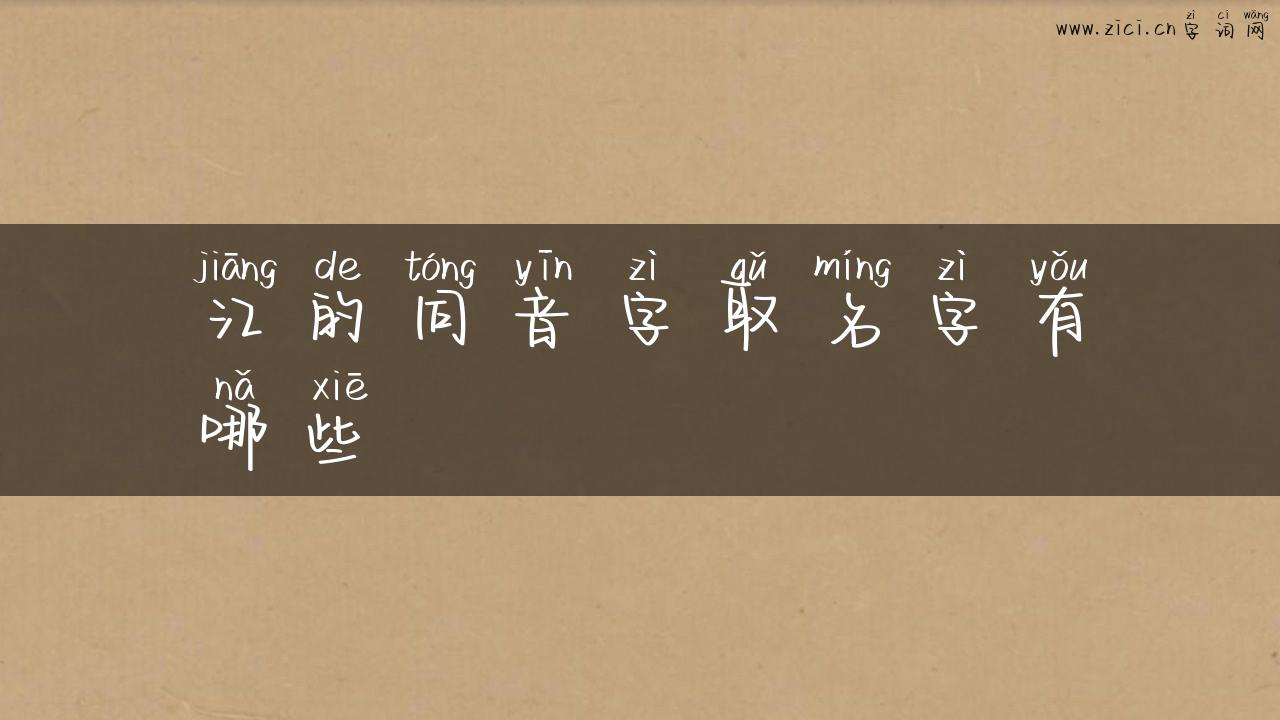 zì cí wǎng
www.zici.cn 字词网
jiāng de tóng yīn zì qǔ míng zì yǒu
江的同音字取名字有
nǎ xiē
哪些